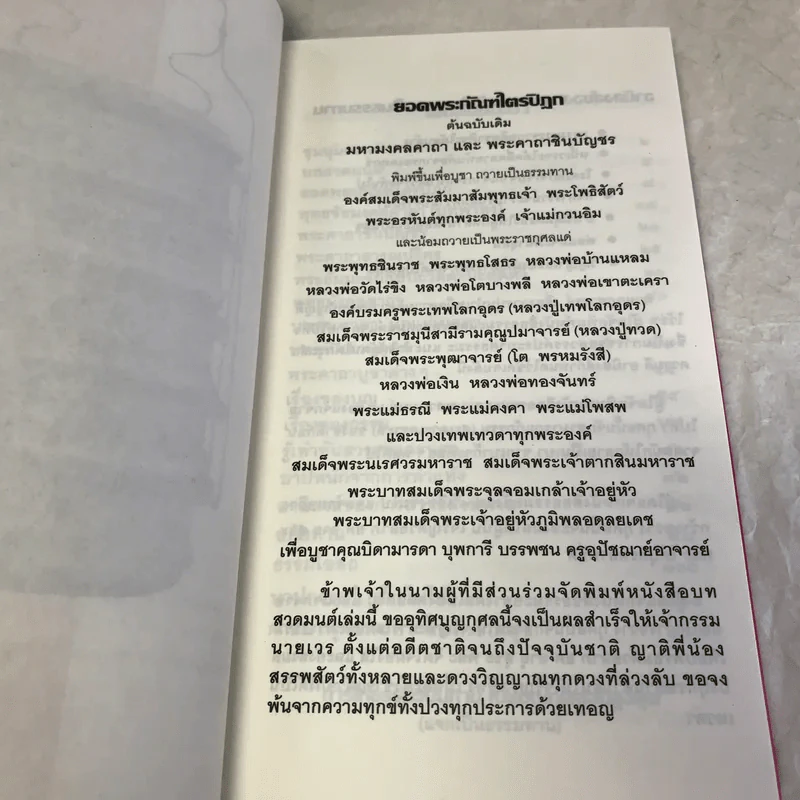 ยอดพระกัณฑ์ไตรปิฎก
ต้นฉบับเดิม
มหามงคลคาถา และ พระคาถาชินบัญชร
พิมพ์ขึ้นเพื่อบูชา ถวายเป็นธรรมทาน
องค์สมเด็จพระสัมมาสัมพุทธเจ้า พระโพธิสัตว์
พระอรหันต์ทุกพระองค์ เจ้าแม่กวนอิม
และน้อมถวายเป็นพระราชกุศลแด่
พระพุทธชินราช พระพุทธโสธร หลวงพ่อบ้านแหลม
หลวงพ่อวัดไร่ขิง หลวงพ่อโตบางพลี หลวงพ่อเขาตะเครา
องค์บรมครูพระเทพโลกอุดร (หลวงปู่เทพโลกอุดร)
สมเด็จพระราชมุนีสามีรามคุณูปมาจารย์ (หลวงปู่ทวด)
สมเด็จพระพุฒาจารย์ (โต พรหมรังสี)
หลวงพ่อเงิน หลวงพ่อทองจันทร์
พระแม่ธรณี พระแม่คงคา พระแม่โพสพ
และปวงเทพเทวดาทุกพระองค์
สมเด็จพระนเรศวรมหาราช สมเด็จพระเจ้าตากสินมหาราช
พระบาทสมเด็จพระจุลจอมเกล้าเจ้าอยู่หัว
พระบาทสมเด็จพระเจ้าอยู่หัวภูมิพลอดุลยเดช
เพื่อบูชาคุณบิดามารดา บุพการี บรรพชน ครูอุปัชฌาย์อาจารย์
ข้าพเจ้าในนามผู้ที่มีส่วนร่วมจัดพิมพ์หนังสือบท
สวดมนต์เล่มนี้ ขออุทิศบุญกุศลนี้จงเป็นผลสำเร็จให้เจ้ากรรม
นายเวร ตั้งแต่อดีตชาติจนถึงปัจจุบันชาติ ญาติพี่น้อง
สรรพสัตว์ทั้งหลายและดวงวิญญาณทุกดวงที่ล่วงลับ ขอจง
พ้นจากความทุกข์ทั้งปวงทุกประการด้วยเทอญ